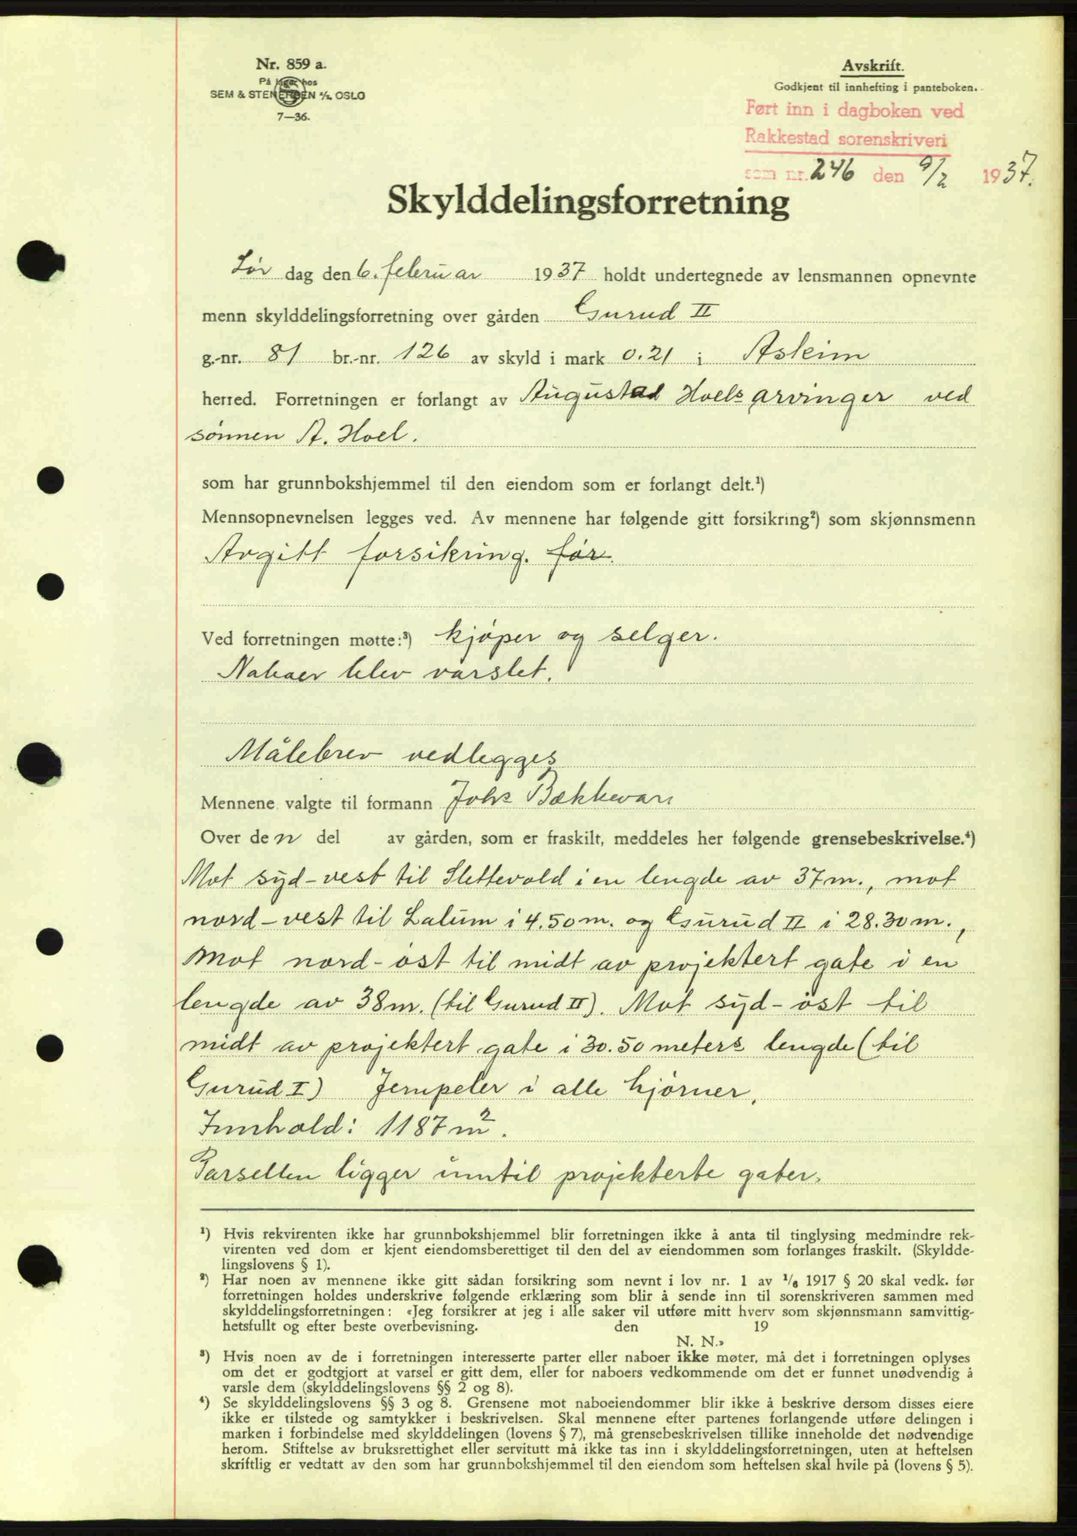 Nr. 859 a.
På lager hos
SEM & STENERSEN A/S OSLO
7—36.
Avskrift.
Godkjent til innhefting i panteboken.
Ført inn i dagboken ved
Rakkestad sorenskriveri
som nr. 246 den 9/2 1937.
Skylddelingsforretning
Lør dag den 6. februar 1937 holdt undertegnede av lensmannen opnevnte
menn skylddelingsforretning over gården Gurud II
g.-nr. 81 br.-nr. 126 av skyld i mark 0.21 i Askim
herred. Forretningen er forlangt av Hoels arvinger ved
sønnen A. Hoel.
som har grunnbokshjemmel til den eiendom som er forlangt delt.¹)
Mennsopnevnelsen legges ved. Av mennene har følgende gitt forsikring²) som skjønnsmenn
Avgitt forsikring. før.
Ved forretningen møtte:³) kjøper og selger.
Naboer blev varslet.
Målebrev vedlegges
Mennene valgte til formann Johs Bækkevar
Over den del av gården, som er fraskilt, meddeles her følgende grensebeskrivelse.⁴)
Mot syd-vest til Slettevold i en lengde av 37 m., mot
nord-vest til Lalum i 4.50 m. og Gurud II i 28.30 m.,
Mot nord-øst til midt av projektert gate i en
lengde av 38 m. (til Gurud II). Mot syd-øst til
midt av projektert gate i 30.50 meters lengde (til
Gurud I) Jernpeler i alle hjørner.
Innhold: 1187 m².
Parsellen ligger inntil projekterte gater.
¹) Hvis rekvirenten ikke har grunnbokshjemmel blir forretningen ikke å anta til tinglysing medmindre rek-
virenten ved dom er kjent eiendomsberettiget til den del av eiendommen som forlanges fraskilt. (Skyldde-
lingslovens § 1).
²) Har noen av mennene ikke gitt sådan forsikring som nevnt i lov nr. 1 av 1/6 1917 § 20 skal vedk. før
forretningen holdes underskrive følgende erklæring som blir å sende inn til sorenskriveren sammen med
skylddelingsforretningen: «Jeg forsikrer at jeg i alle saker vil utføre mitt hverv som skjønnsmann samvittig-
hetsfullt og efter beste overbevisning. den 19
N. N.»
³) Hvis noen av de i forretningen interesserte parter eller naboer ikke møter, må det i forretningen oplyses
om det er godtgjort at varsel er gitt dem, eller for naboers vedkommende om det er funnet unødvendig å
varsle dem (skylddelingslovens §§ 2 og 8).
⁴) Se skylddelingslovens §§ 3 og 8. Grensene mot naboeiendommer blir ikke å beskrive dersom disses eiere
ikke er tilstede og samtykker i beskrivelsen. Skal mennene efter partenes forlangende utføre delingen i
marken i forbindelse med skylddelingen (lovens § 7), må grensebeskrivelsen tillike inneholde det nødvendige
herom. Stiftelse av bruksrettighet eller servitutt må ikke tas inn i skylddelingsforretningen, uten at heftelsen
skriftlig er vedtatt av den som har grunnbokshjemmel til den eiendom som heftelsen skal hvile på (lovens § 5).